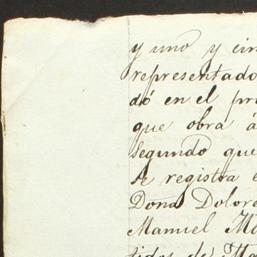 y uno y cin
representado
dó en el pri
que obra á
segundo que
se registra e
Dona Dolore
Manuel Ma
tidos de Ma